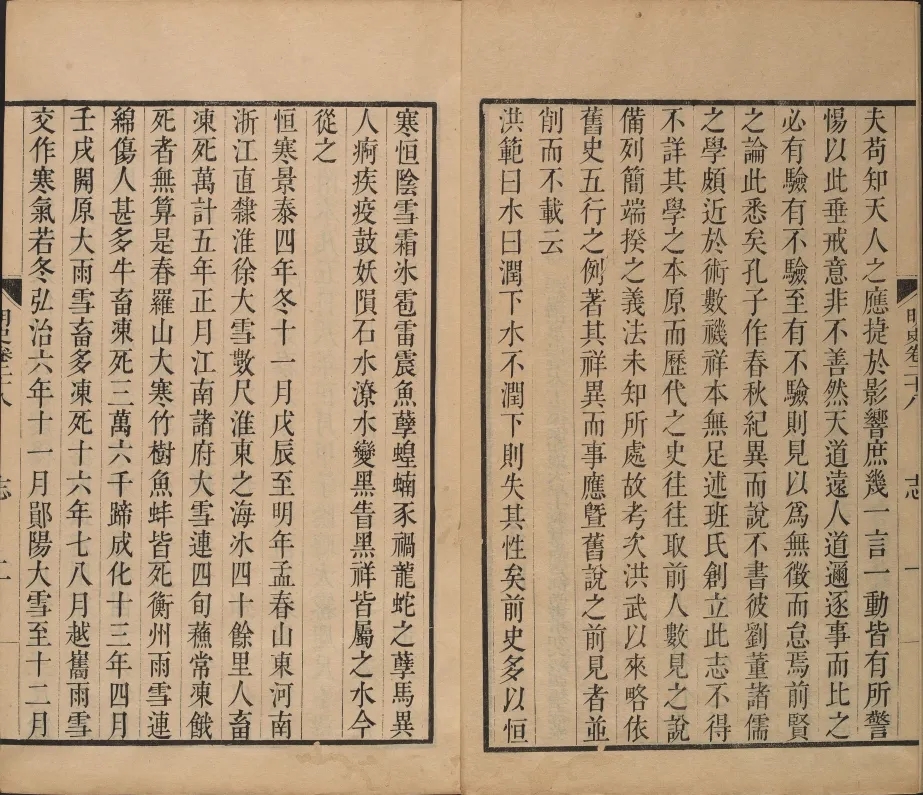 夫苟知天人之應捷於影響庶幾一言一動皆有所警
惕以此垂戒意非不善然天道遠人道邇逐事而比之
必有驗有不驗至有不驗則見以爲無徵而怠焉前賢
之論此悉矣孔子作春秋紀異而說不書彼劉董諸儒
之學頗近於術數禨祥本無足述班氏創立此志不得
不詳其學之本原而歷代之史往往取前人數見之說
備列簡端揆之義法未知所處故考次洪武以來略依
舊史五行之例著其祥異而事應曁舊說之前見者並
削而不載云
洪範曰水曰潤下水不潤下則失其性矣前史多以恒
明史卷二十八
志
一
寒恒陰雪霜冰雹雷震魚孽蝗蝻豕禍龍蛇之孽馬異
人痾疾疫鼓妖隕石水潦水變黑眚黑祥皆屬之水今
從之
恒寒景泰四年冬十一月戊辰至明年孟春山東河南
浙江直隸淮徐大雪數尺淮東之海冰四十餘里人畜
凍死萬計五年正月江南諸府大雪連四旬蘓常凍餓
死者無算是春羅山大寒竹樹魚蚌皆死衡州雨雪連
綿傷人甚多牛畜凍死三萬六千蹄成化十三年四月
壬戌開原大雨雪畜多凍死十六年七八月越巂雨雪
交作寒氣若冬弘治六年十一月鄖陽大雪至十二月
明史卷二十八
志
二